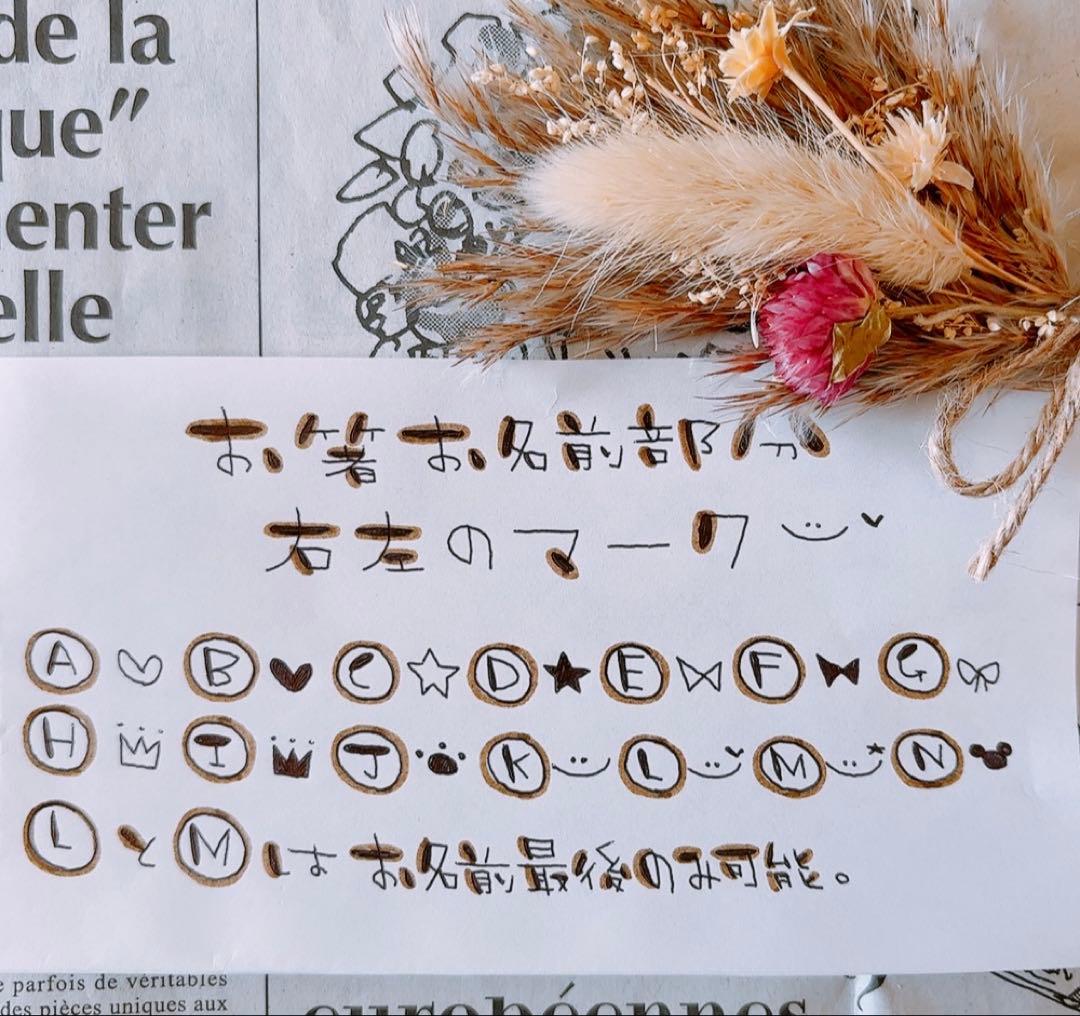 de la
que”
enter
elle
お箸お名前部分
右左のマーク
A ♡ B ♥ C ☆ D ★ E F G
H I J K L M N
LとMはお名前最後のみ可能。
parfois de véritables
des pièces uniques aux
européennes